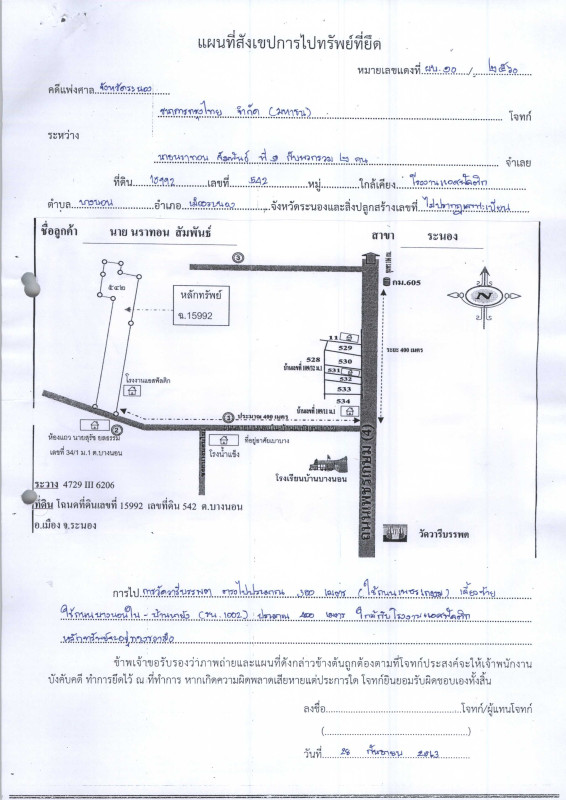 แผนที่สังเขปการไปทรัพย์ที่ยึด
หมายเลขแดงที่ ผบ.๑๐ / ๒๕๖๐
คดีแพ่งศาล จังหวัดระนอง
ธนาคารกรุงไทย จำกัด (มหาชน) โจทก์
ระหว่าง
นายนราทอน สัมพันธ์ ที่ ๑ กับพวกรวม ๒ คน จำเลย
ที่ดิน 15992 เลขที่ 542 หมู่ ใกล้เคียง โรงงานแอสฟัลติก
ตำบล บางนอน อำเภอ เมืองระนอง จังหวัดระนองและสิ่งปลูกสร้างเลขที่ ไม่ปรากฏเลขทะเบียน
ชื่อลูกค้า นาย นราทอน สัมพันธ์ สาขา ระนอง
3
กม.605
๕๔๒
หลักทรัพย์
ฉ.15992
N
ระยะ 400 เมตร
11
529
528
530
531
532
533
534
โรงงานแอสฟัลติก
1 ประมาณ 400 เมตร
2
ห้องแถว นายสุรัช ยลธรรม์
เลขที่ 34/1 ม.1 ต.บางนอน
โรงน้ำแข็ง
ที่อยู่อาศัยเบาบาง
โรงเรียนบ้านบางนอน
ถนนเพชรเกษม (4)
วัดวารีบรรพต
ระวาง 4729 III 6206
ที่ดิน โฉนดที่ดินเลขที่ 15992 เลขที่ดิน 542 ต.บางนอน
อ.เมือง จ.ระนอง
การไป จากวัดวารีบรรพต ตรงไปประมาณ 300 เมตร (ใช้ถนนเพชรเกษม) เลี้ยวซ้าย
ใช้ถนนบางนอนใน - บ้าน (รน.1002) ประมาณ 400 เมตร ใกล้กับโรงงานแอสฟัลติก
หลักทรัพย์จะอยู่ทางขวามือ
ข้าพเจ้าขอรับรองว่าภาพถ่ายและแผนที่ดังกล่าวข้างต้นถูกต้องตามที่โจทก์ประสงค์จะให้เจ้าพนักงาน
บังคับคดี ทำการยึดไว้ ณ ที่ทำการ หากเกิดความผิดพลาดเสียหายแต่ประการใด โจทก์ยินยอมรับผิดชอบเองทั้งสิ้น
ลงชื่อ โจทก์/ผู้แทนโจทก์
( )
วันที่ 28 กันยายน 2563